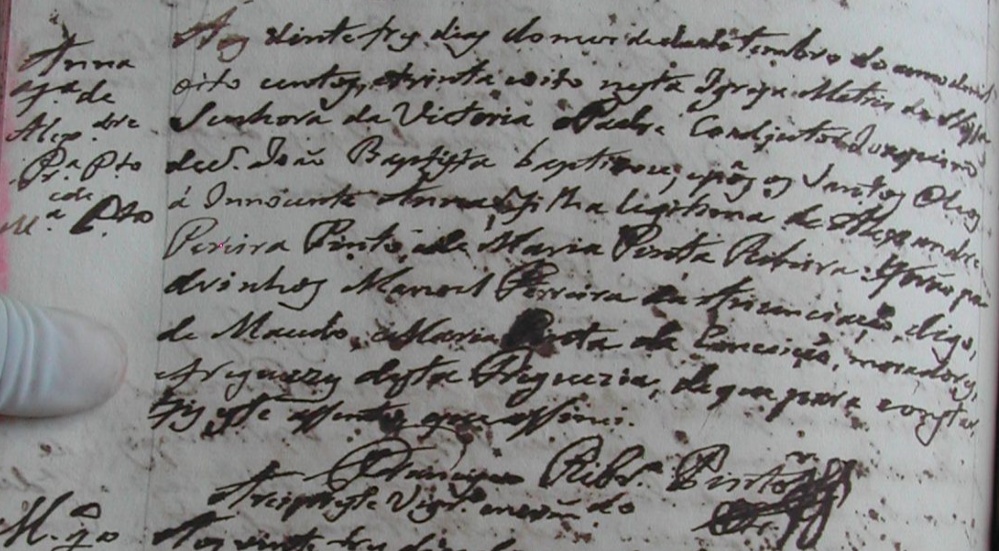 Anna
de
Alex.dre
Pr.a Pto
e de
M.a Pto
Aos vinte tres dias do mes de Setembro do anno de mil
oito centos, e trinta e oito nesta Igreja Matris de Nossa
Senhora da Victoria o Padre Coadjutor Joaquim
de S. João Baptista baptisou, e pôs os Santos Oleos
á Innocente Anna, filha legitima de Alexandre
Pereira Pinto, e de Maria Pinta Ribeira: forão pa
drinhos Manoel Ferreira da Anunciação, digo,
de Macedo, e Maria Pinta da Conceição, moradores,
e freguezes desta Freguezia, de que para constar,
fiz este assento, que assinei.
Ribr.o Pinto
Arcipreste Vigr.o
M.
Aos vinte tres dias